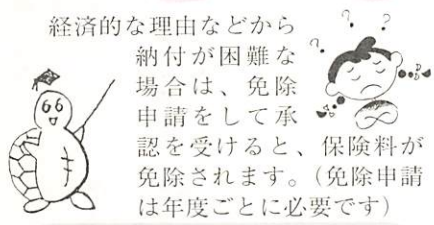 経済的な理由などから
納付が困難な
場合は、免除
申請をして承
認を受けると、保険料が
免除されます。(免除申請
は年度ごとに必要です)
? ? ?